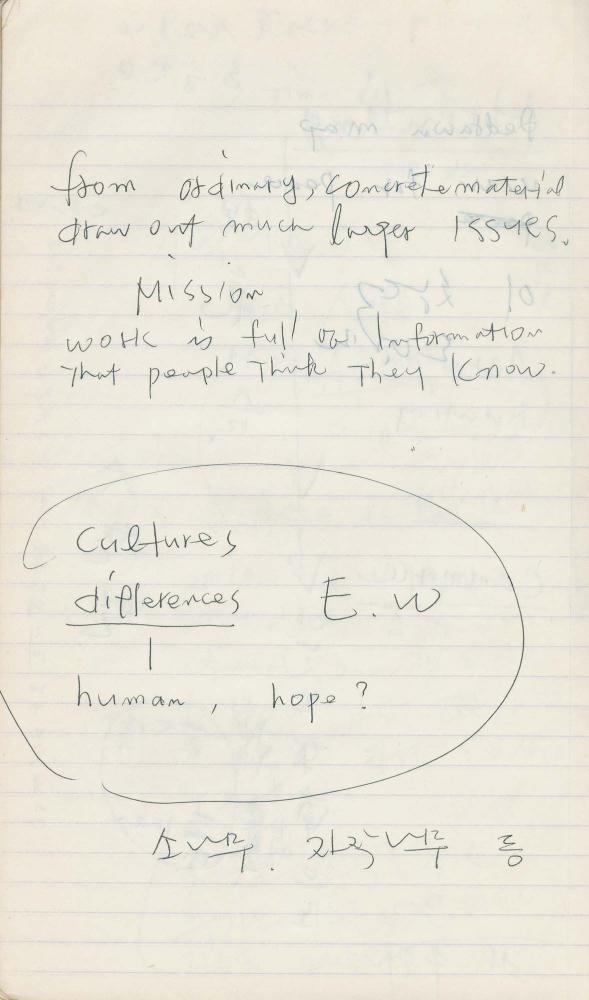 from ordinary, concrete material
draw out much larger issues.
Mission
work is full of Information
That people Think They Know.
Cultures
differences E. W
human, hope?
소나무. 자작나무 등